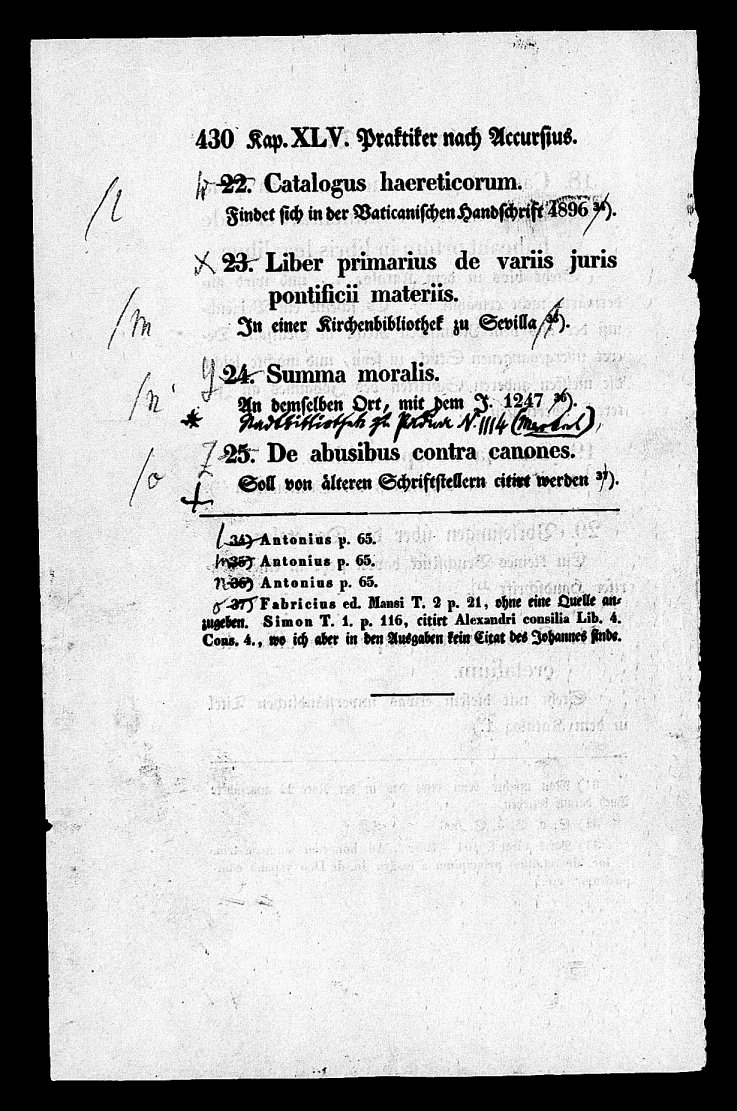 430 Kap. XLV. Praktiker nach Accursius.
w 22. Catalogus haereticorum.
/l
Findet sich in der Vaticanischen Handschrift 4896 34).
x 23. Liber primarius de variis juris
pontificii materiis.
/m
In einer Kirchenbibliothek zu Sevilla 35).
y 24. Summa moralis.
/n
An demselben Ort, mit dem J. 1247 36).
* Stadtbibliothek zu Padua N. 1114 (Merkel),
z 25. De abusibus contra canones.
/o
+ Soll von älteren Schriftstellern citirt werden 37).
l 34) Antonius p. 65.
m 35) Antonius p. 65.
n 36) Antonius p. 65.
o 37) Fabricius ed. Mansi T. 2 p. 21, ohne eine Quelle an-
zugeben. Simon T. 1. p. 116, citirt Alexandri consilia Lib. 4.
Cons. 4., wo ich aber in den Ausgaben kein Citat des Johannes finde.